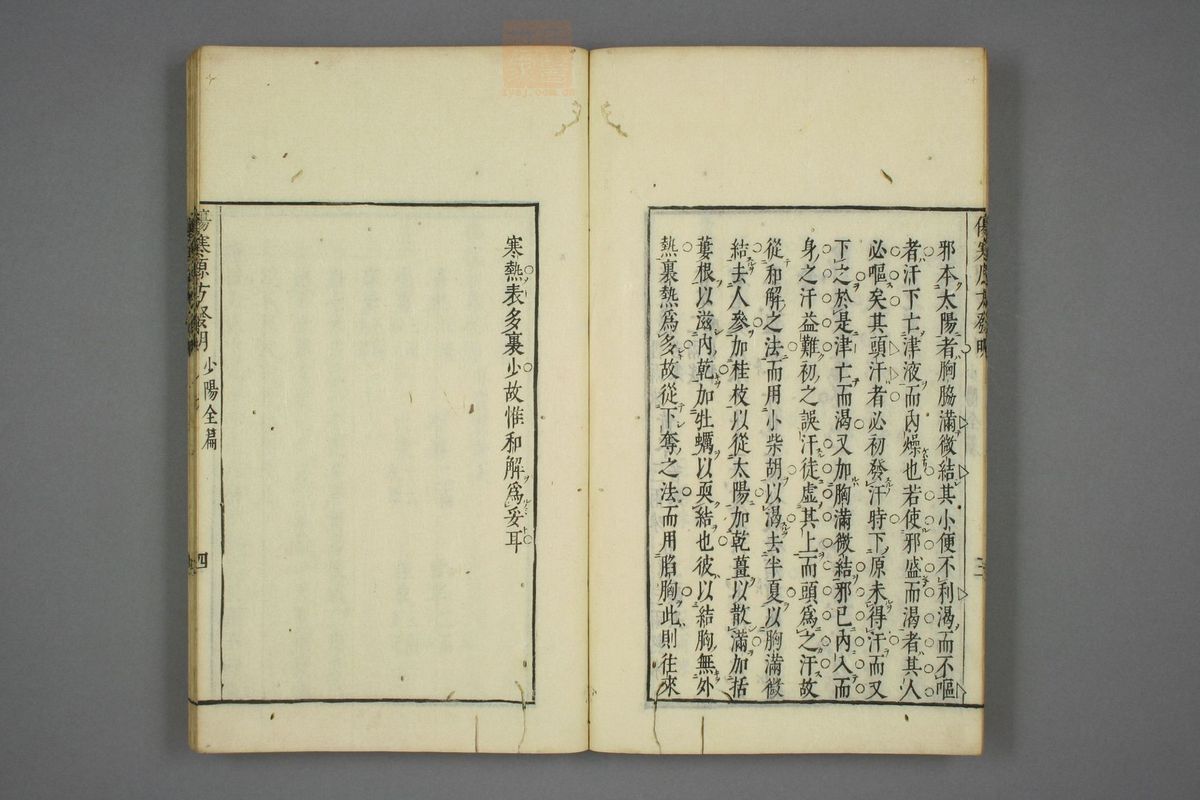 邪本太陽者胸脇滿微結其小便不利渴而不嘔
者汗下亡津液而內燥也若使邪盛而渴者其人
必嘔矣其頭汗者必初發汗時下原未得汗而又
下之於是津亡而渴又加胸滿微結邪已內入而
身之汗益難初之誤汗徒虛其上而頭爲之汗故
從和解之法而用小柴胡以渴去半夏以胸滿微
結去人參加桂枝以從太陽加乾薑以散滿加括
蔞根以滋內乾加牡蠣以耎結也彼以結胸無外
熱裏熱爲多故從下奪之法而用陷胸此則往來
寒熱表多裏少故惟和解爲妥耳
少陽全篇
四
zysj.com.cn